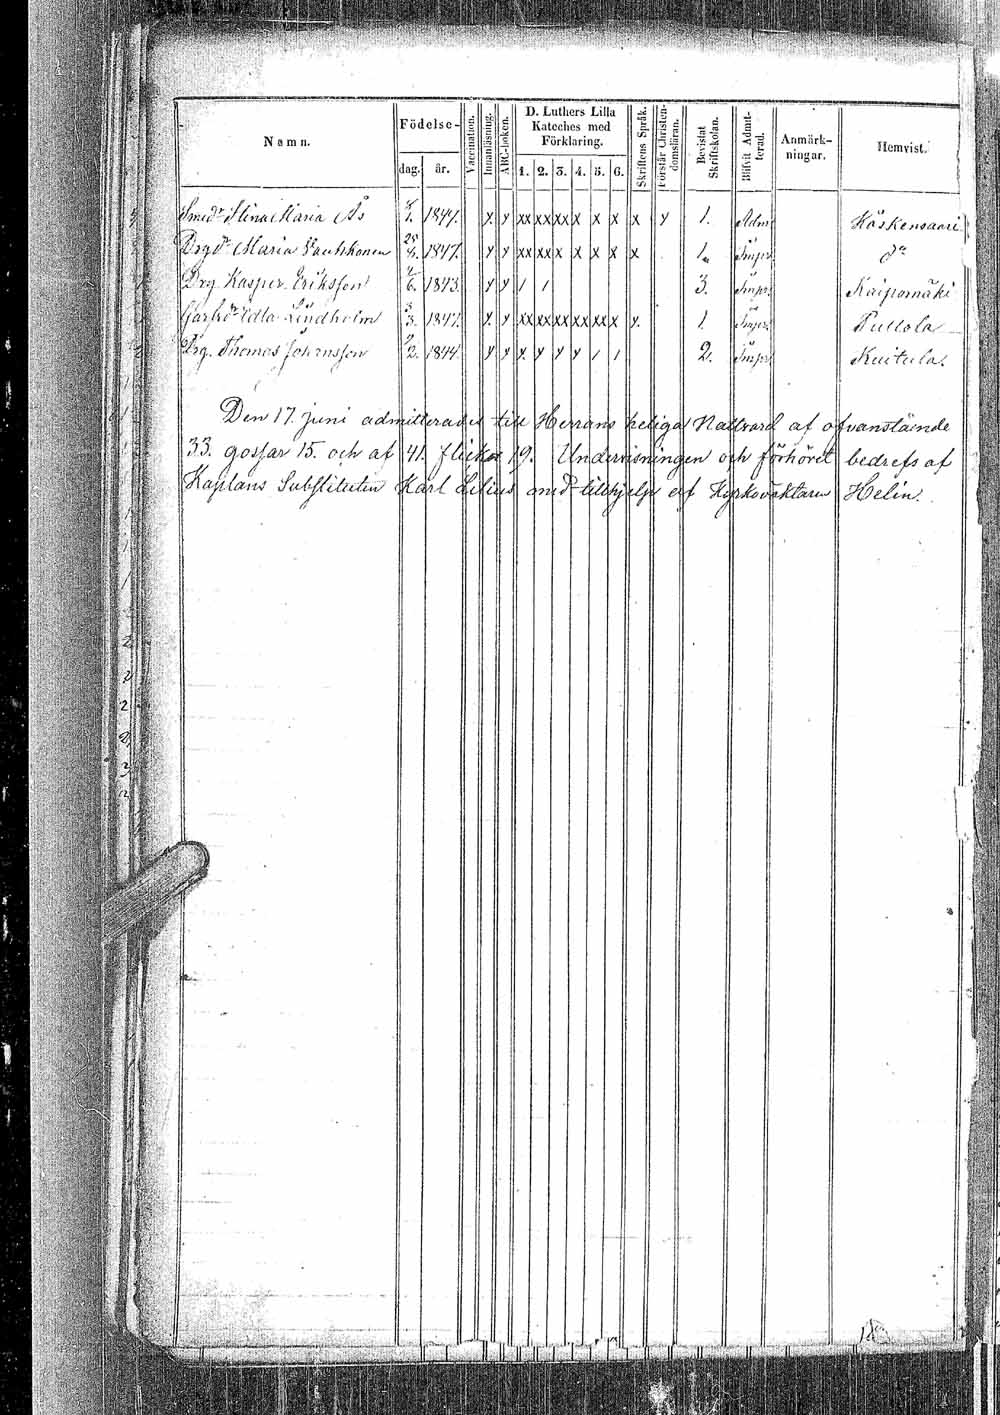 Namn. Födelse- dag. år. Vaccination. Innanläsning. ABC-boken. D. Luthers Lilla Kateches med Förklaring. 1. 2. 3. 4. 5. 6. Skriftens Språk. Förstår Christendomsläran. Bevistat Skriftskolan. Blifvit Admitterad. Anmärkningar. Hemvist.
Smedr Stina Maria Ås 1847. x y xx xx xx x x x x y 1. Adm
Drgdr Maria 1847. y y xx xx x x x x x 1. Impr. do
Drg. Kasper Eriksson 1843. y y / / 3. Impr. Kaipomäki
Edla Lindholm 3/3. 1847. y. x xx xx xx xx xx x y. 1. Impr.
Drg. Thomas Johansson 1844 y y y. y y y / / 2. Impr Kuitula.
Den 17. juni admitterades till Herrans heliga Nattvard af ofvanstående
33. gossar 15. och af 41. flickor 19. Undervisningen och förhöret bedrefs af
Kaplans Substituten Karl Lilius med tillhjelp af Kyrkoväktaren Helin.